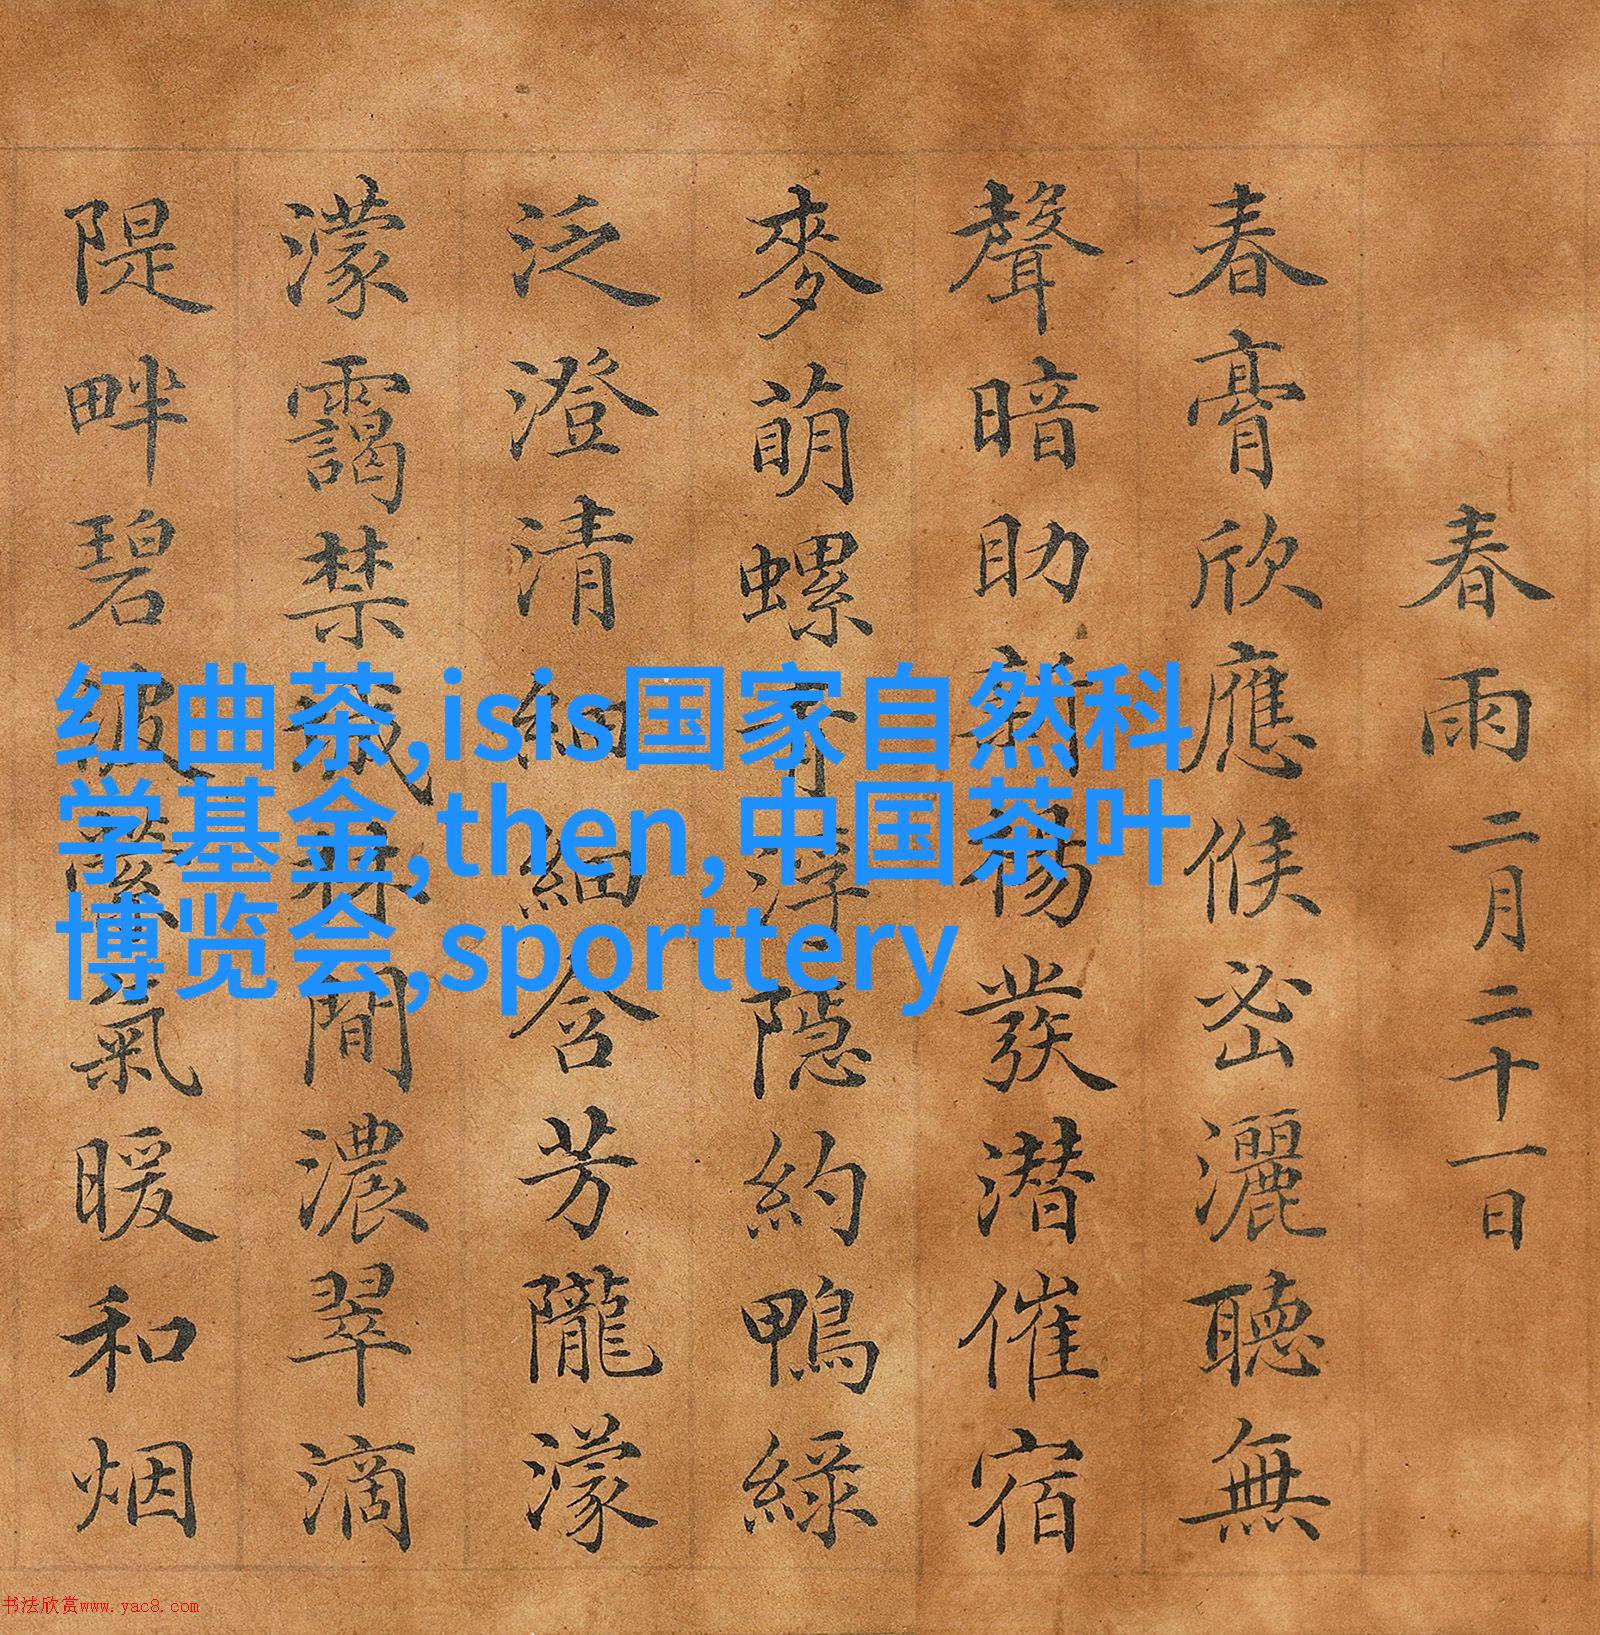 春雨 二月二十一日
春膏欣應候密灑聽無
聲暗助新楊發潜催宿
麥萌螺青浮隐約鴨綠
泛澄清細細含芳隴濛
濛靄禁城間濃翠滴
隄畔碧氣暖和烟
红曲茶,isis国家自然科
学基金,then,中国茶叶
博览会,sporttery
书法欣赏www.yac8.com